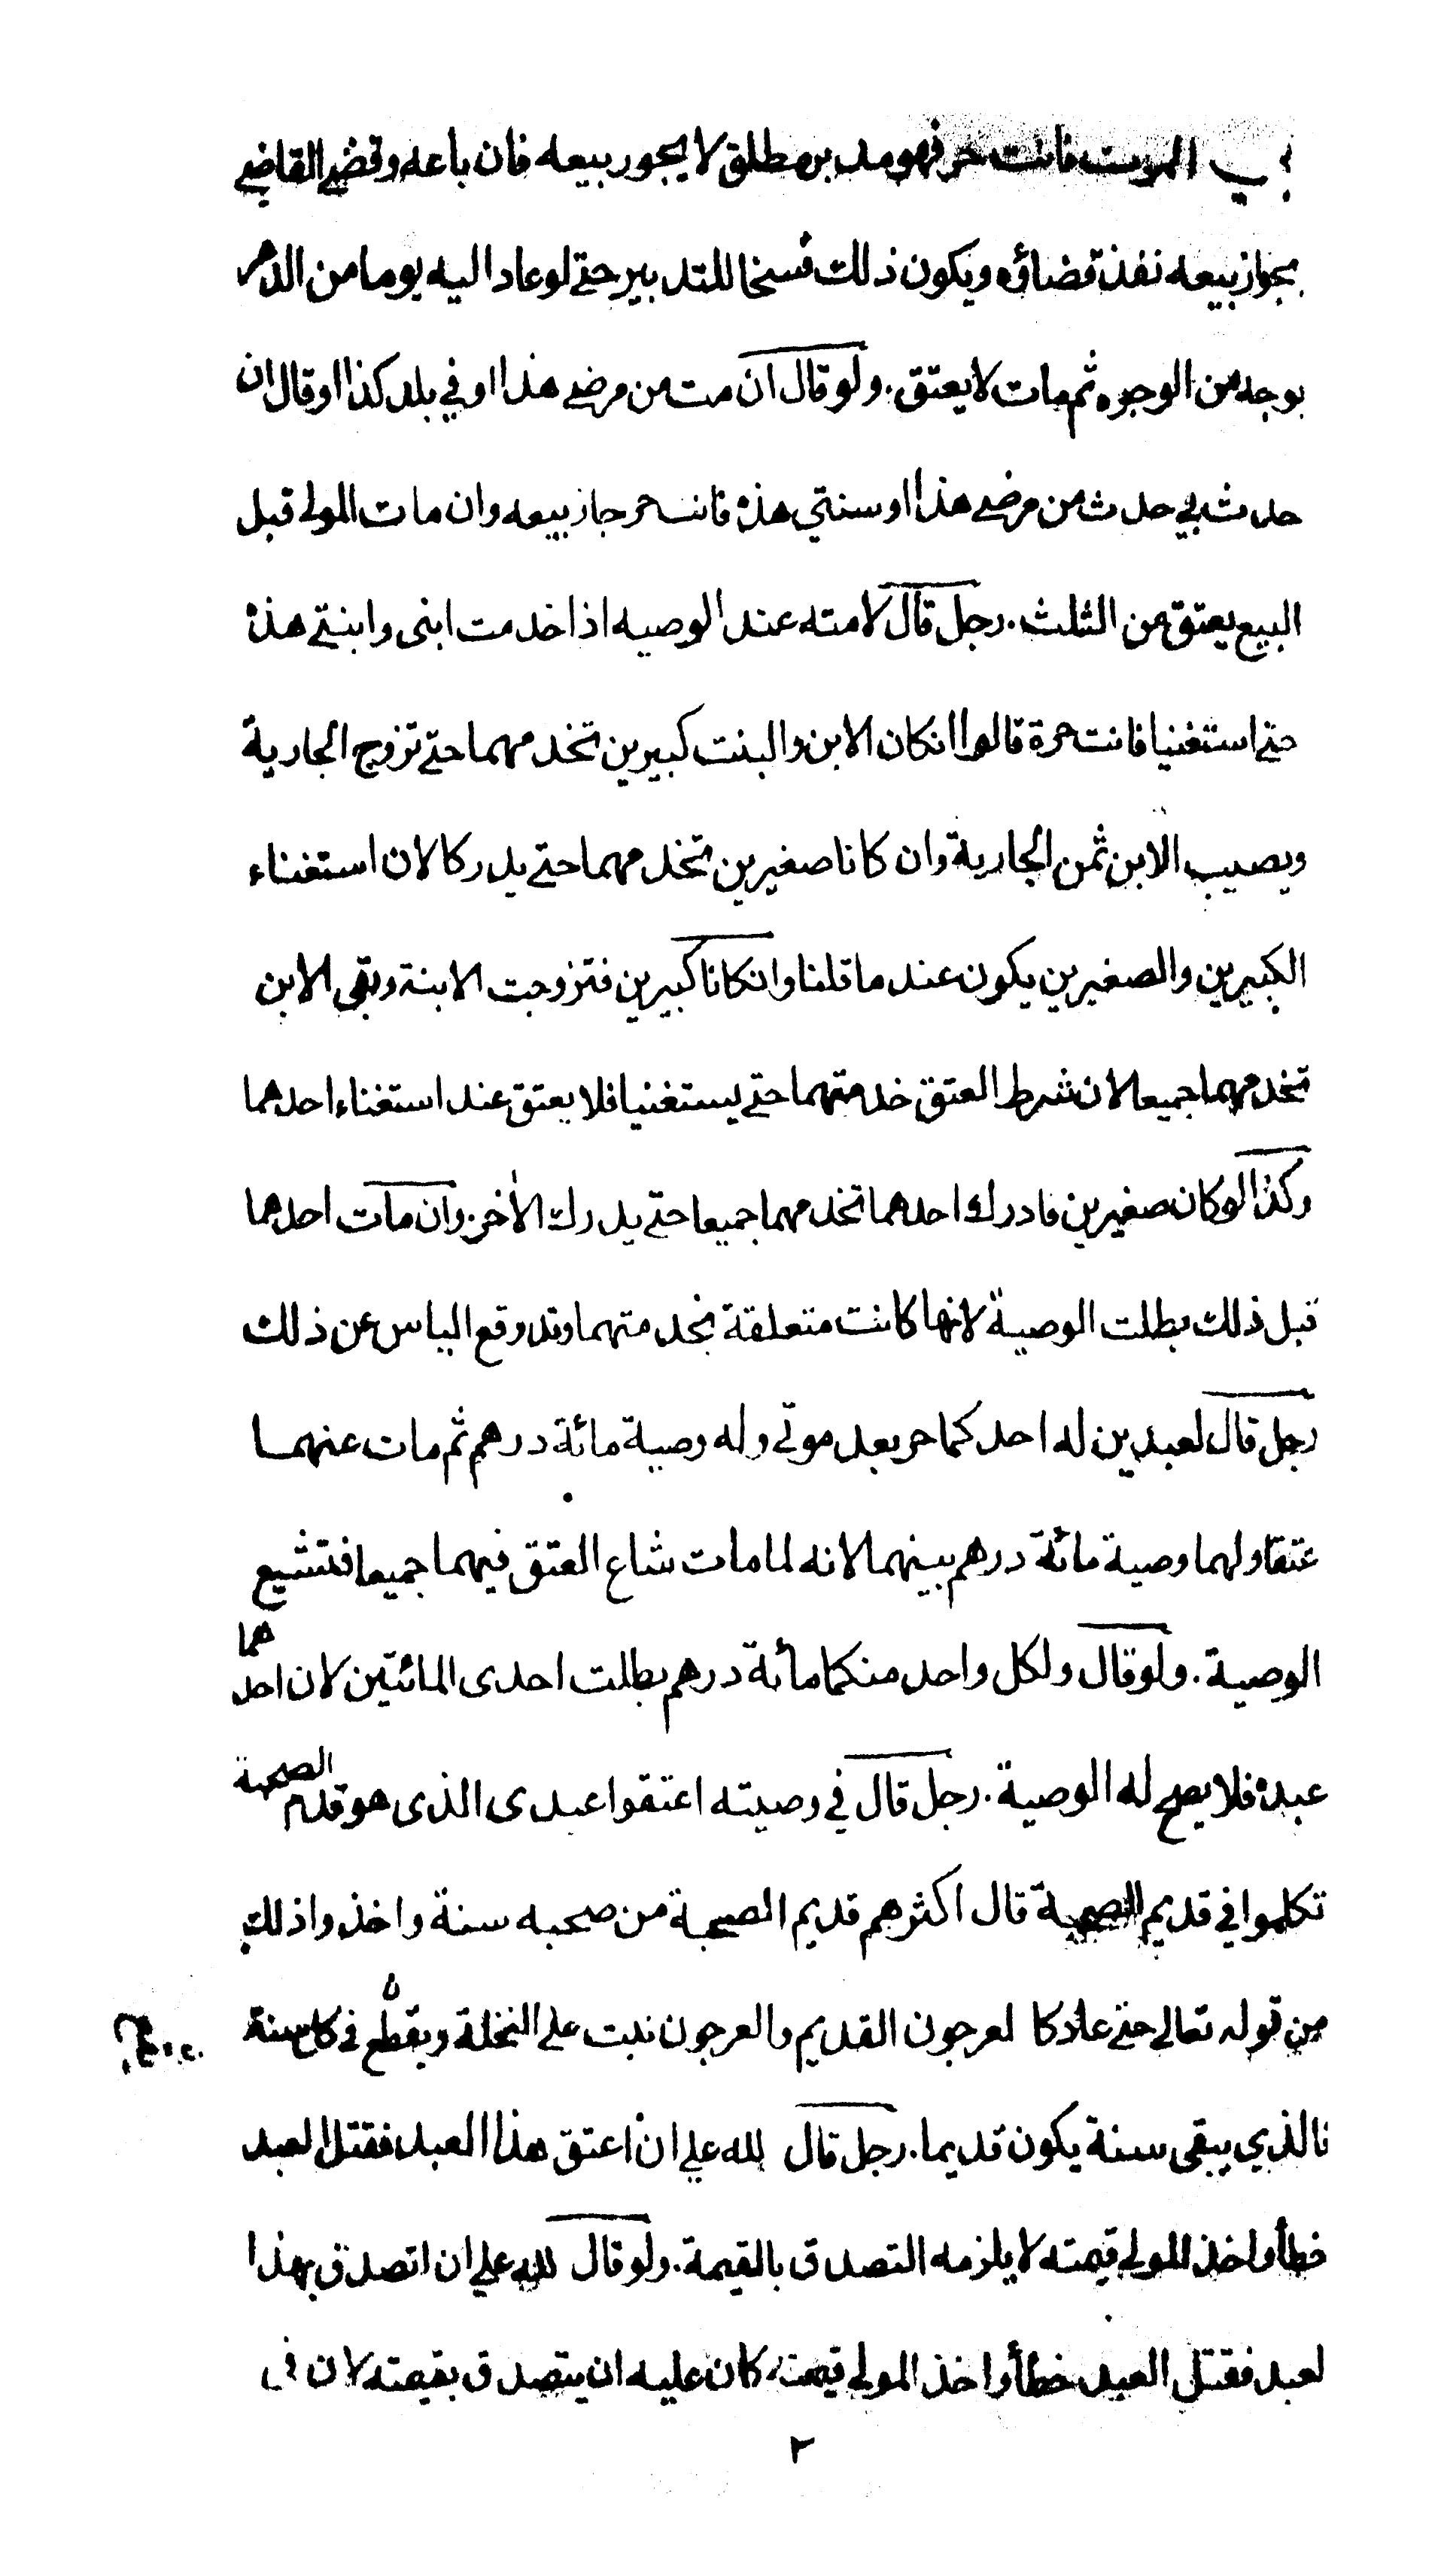 بي الموت فانت حر فهو مدبر مطلق لا يجوز بيعه فان باعه وقضى القاضي
بجواز بيعه نفذ قضاؤه ويكون ذلك فسخا للتدبير حتى لو عاد اليه يوما من الدهر
بوجه من الوجوه ثم مات لا يعتق. ولو قال ان مت من مرضي هذا او في بلد كذا او قال ان
حدث بي حدث من مرضي هذا او سنتي هذه فانت حر جاز بيعه وان مات المولى قبل
البيع يعتق من الثلث. رجل قال لامته عند الوصيه اذا خدمت ابنى وابنتي هذه
حتى استغنيا فانت حرة قالوا انكان الابن والبنت كبيرين تخدمهما حتى تزوج الجارية
ويصيب الابن ثمن الجارية وان كانا صغيرين تخدمهما حتى يدركا لان استغناء
الكبيرين والصغيرين يكون عند ما قلنا وانكانا كبيرين فتزوجت الابنة وبقى الابن
تخدمهما جميعا لان شرط العتق خدمتهما حتى يستغنيا فلا يعتق عند استغناء احدهما
وكذا لوكان صغيرين فادرك احدهما تخدمهما جميعا حتى يدرك الأخر. وان مات احدهما
قبل ذلك بطلت الوصية لانها كانت متعلقة بخدمتهما وقد وقع الياس عن ذلك
رجل قال لعبدين له احدكما حر بعد موتى وله وصية مائة درهم ثم مات عنهما
عتقا ولهما وصية مائة درهم بينهما لانه لما مات شاع العتق فيهما جميعا فتشيع
الوصية. ولو قال ولكل واحد منكما مائة درهم بطلت احدى المائتين لان احدهما
عبده فلا يصح له الوصية. رجل قال في وصيته اعتقوا عبدى الذى هو قديم الصحبة
تكلموا في قديم الصحبة قال اكثرهم قديم الصحبة من صحبه سنة واخذوا ذلك
من قوله تعالى حتى عاد كا لعرجون القديم والعرجون نبت على النخلة ويقطع في كل سنة
فالذي يبقى سنة يكون قديما. رجل قال لله علي ان اعتق هذا العبد فقتل العبد
خطأ واخذ المولى قيمته لا يلزمه التصدق بالقيمة. ولو قال لله علي ان اتصدق بهذا
لعبد فقتل العبد خطأ واخذ المولى قيمته كان عليه ان يتصدق بقيمته لان في
٢